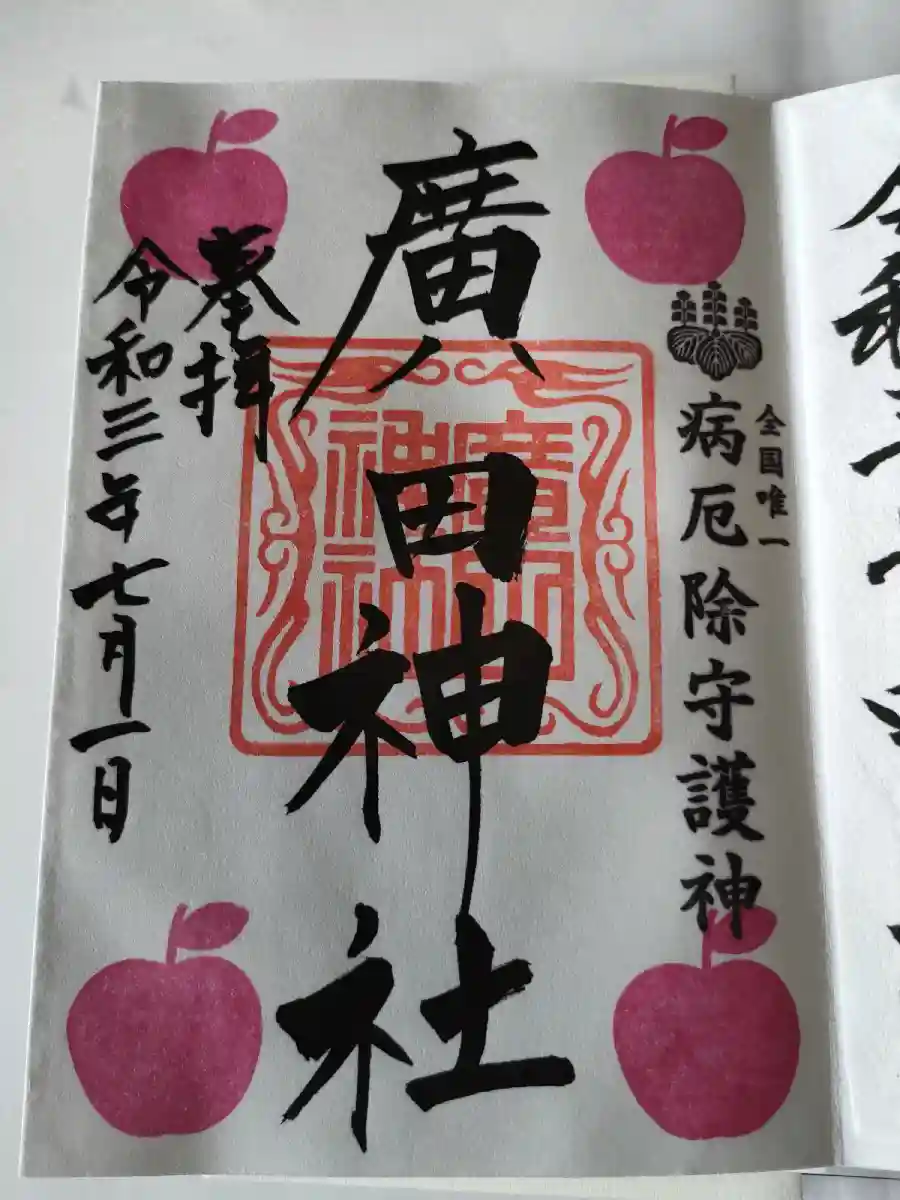 全国唯一
病厄除守護神
廣田神社
廣田神社
奉拝
令和三年七月一日